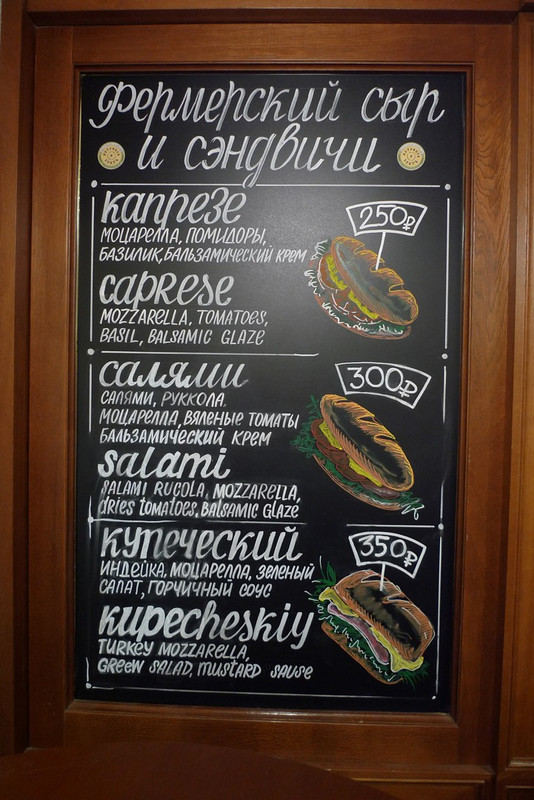 Фермерский сыр
и сэндвичи
капрезе
250₽
МОЦАРЕЛЛА, ПОМИДОРЫ,
БАЗИЛИК, БАЛЬЗАМИЧЕСКИЙ КРЕМ
CAPRESE
MOZZARELLA, TOMATOES,
BASIL, BALSAMIC GLAZE
салями
300₽
САЛЯМИ, РУККОЛА.
МОЦАРЕЛЛА, ВЯЛЕНЫЕ ТОМАТЫ
БАЛЬЗАМИЧЕСКИЙ КРЕМ
salami
SALAMI RUCOLA, MOZZARELLA,
dries tomatoes, BALSAMIC GLAZE
купеческий
350₽
ИНДЕЙКА, МОЦАРЕЛЛА, ЗЕЛЕНЫЙ
САЛАТ, ГОРЧИЧНЫЙ СОУС
kupecheskiy
TURKEY MOZZARELLA,
GREEW SALAD, MUSTARD SAUSE